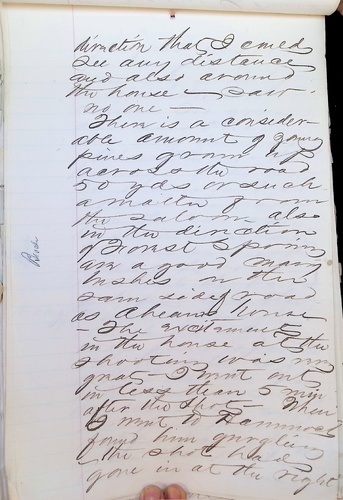 direction that I could
see any distance
and also around
the house – saw
no one –
There is a consider-
able amount of young
pines grown up
across the road
50 yds or such
a matter from
the saloon also
in the direction
of Forest Spring
are a good many
bushes on the
sam side of road
as Aheans house
– The excitement
in the house at the
shooting was very
great – I went out
in less than 5 min
after the shot – When
I went to Hammond
found him gurgling
– the shot had
gone in at the right